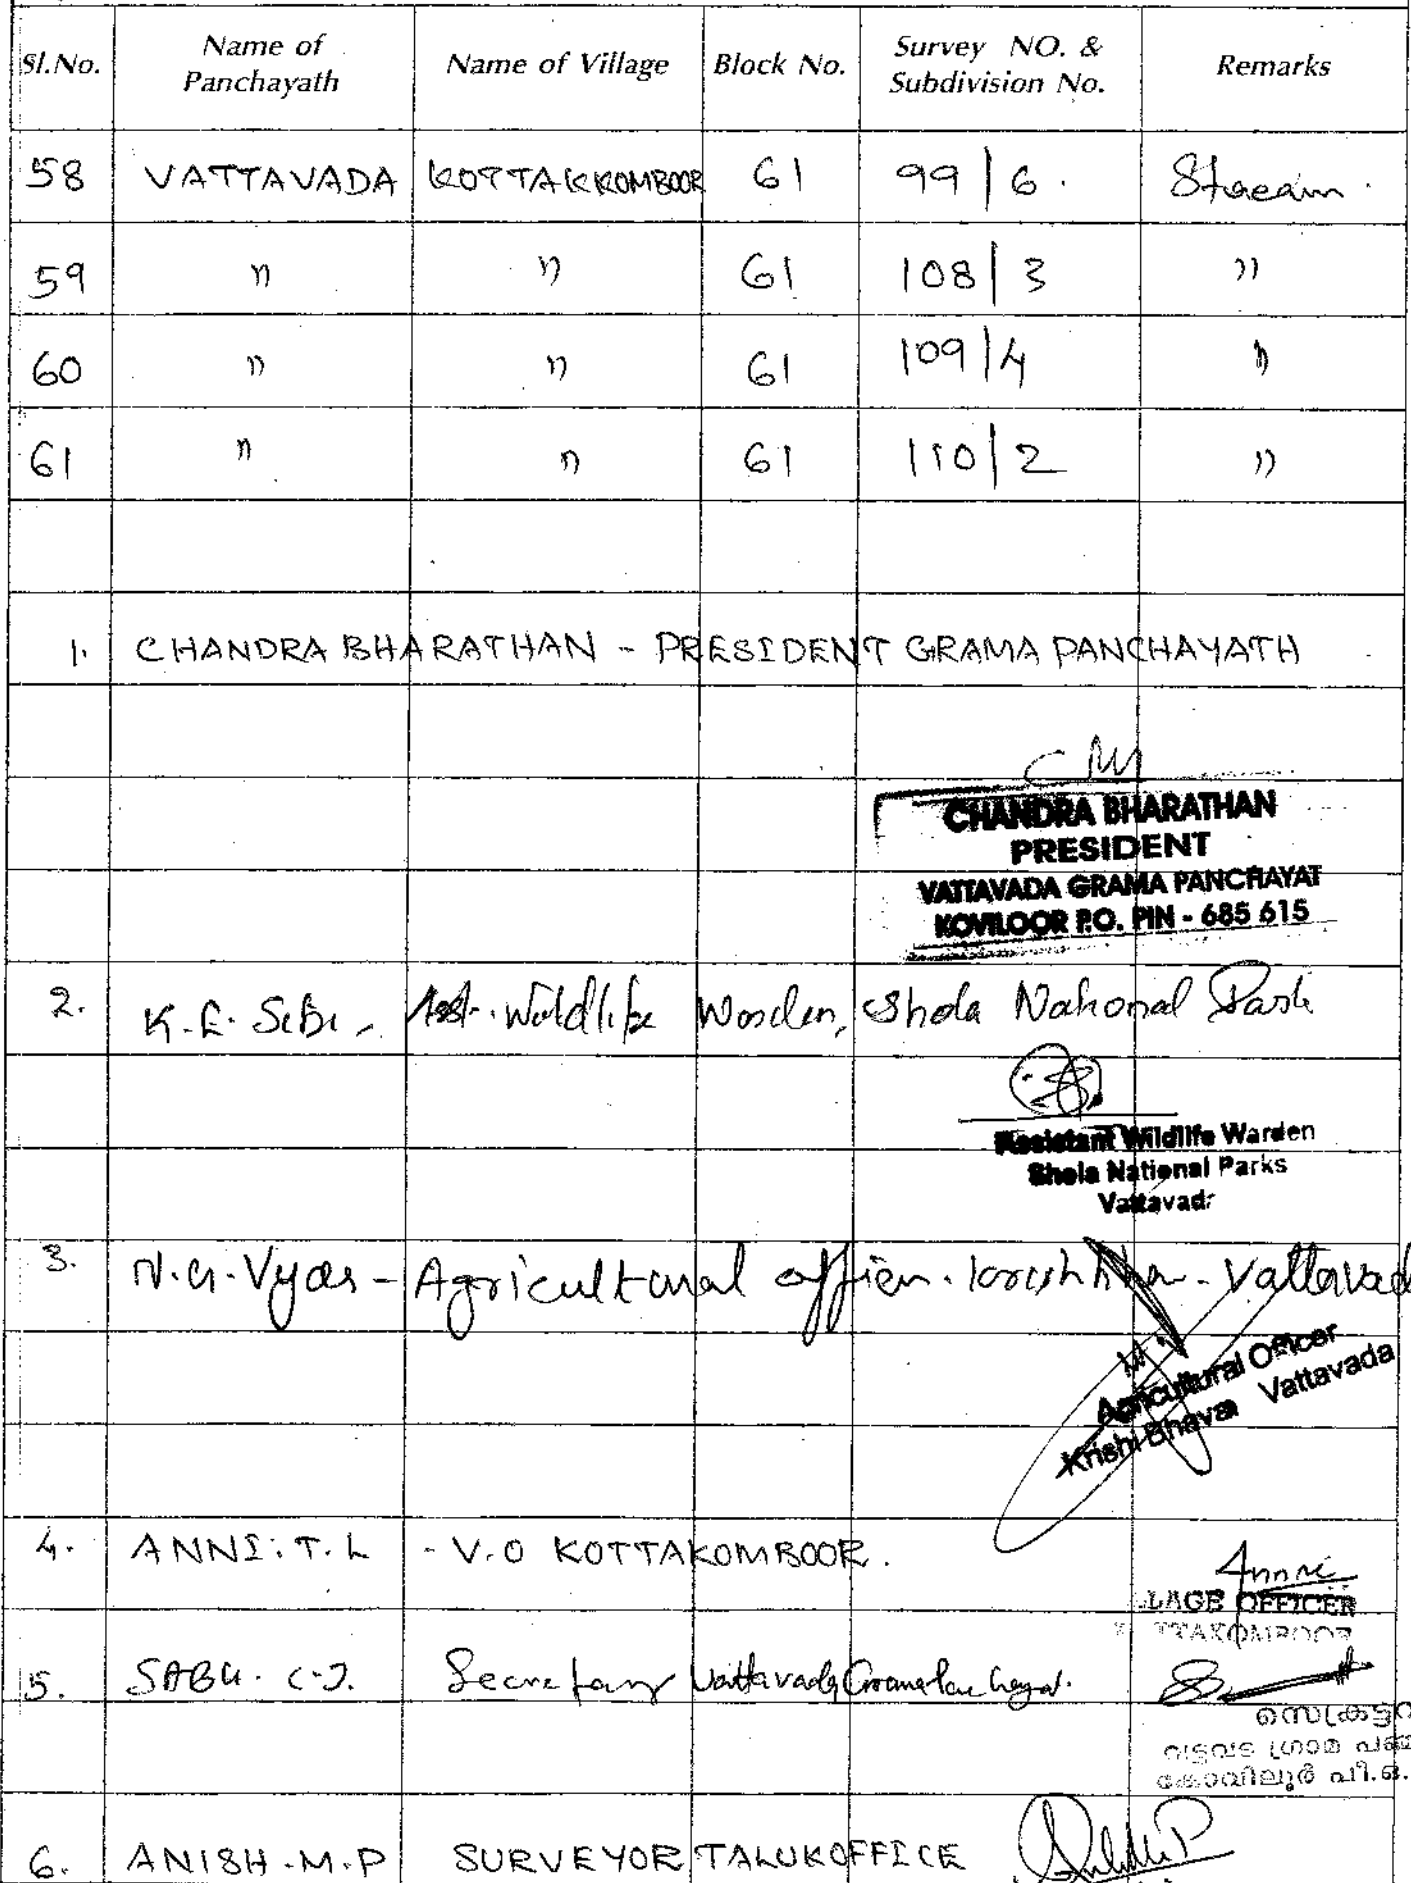 Sl.No. Name of Panchayath Name of Village Block No. Survey NO. & Subdivision No. Remarks
58 VATTAVADA KOTTAKKOMBOOR 61 99/6. Stream.
59 " " 61 108/3 "
60 " " 61 109/4 "
61 " " 61 110/2 "
1. CHANDRA BHARATHAN - PRESIDENT GRAMA PANCHAYATH
CHANDRA BHARATHAN
PRESIDENT
VATTAVADA GRAMA PANCHAYAT
KOVILOOR P.O. PIN - 685 615
2. K.E. Sibi, Asst. Wildlife Warden, Shola National Park
Assistant Wildlife Warden
Shola National Parks
Vattavad
3. N.G. Vyas - Agricultural officer. - Vattavad
Agricultural Officer
Krishi Bhava Vattavada
4. ANNI.T.L - V.O KOTTAKOMBOOR.
Anni
LAGE OFFICER
TTAKOMBOOR
5. SABU. C.J. Secretary Vattavada Grama Panchayat.
സെക്രട്ടറ
വട്ടവട ഗ്രാമ പഞ്ചാ
കോവിലൂർ പി.ഒ.
6. ANISH.M.P SURVEYOR TALUKOFFICE